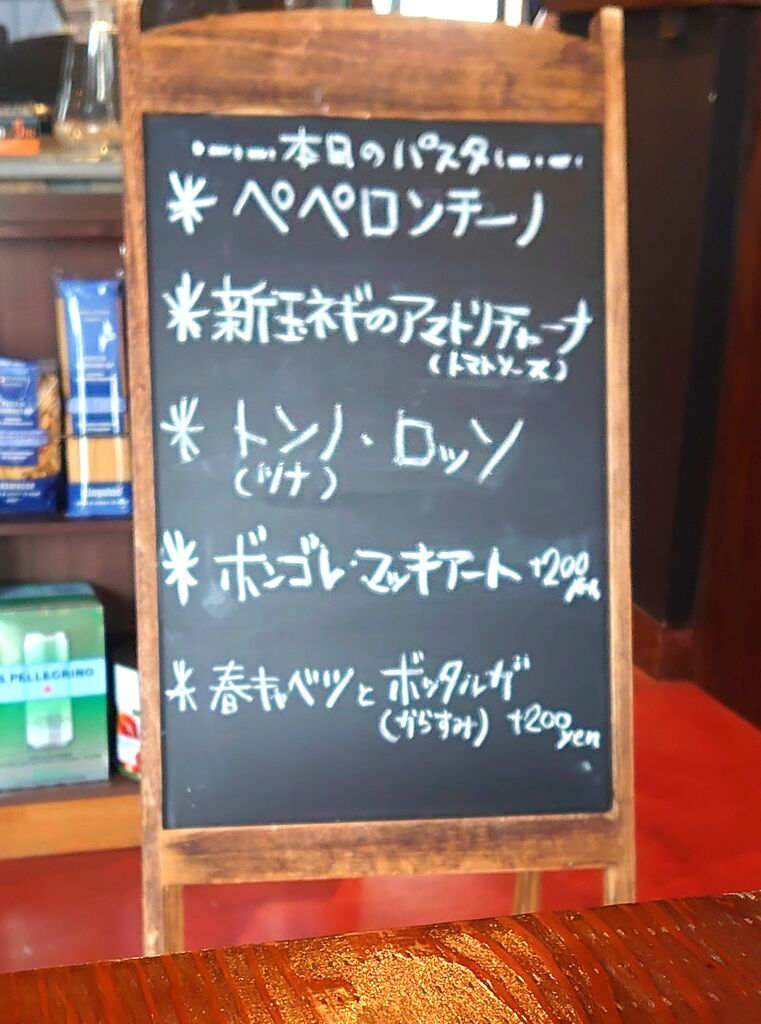 本日のパスタ
* ペペロンチーノ
* 新玉ネギのアマトリチャーナ
(トマトソース)
* トンノ・ロッソ
(ツナ)
* ボンゴレ・マッキアート +200 yen
* 春キャベツとボッタルガ
(からすみ) +200 yen
S.PELLEGRINO
linguine